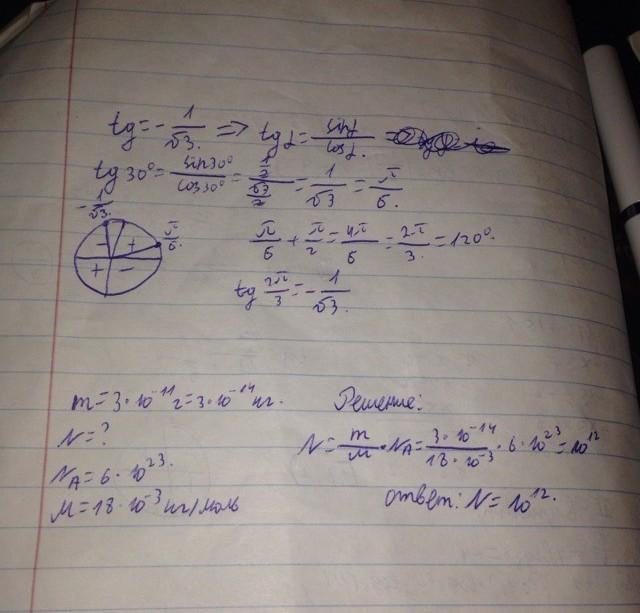 tg = - 1/√3. => tg α = sin α / cos α. =
tg 30° = sin 30° / cos 30° = (1/2) / (√3/2) = 1/√3 = π/6.
- 1/√3.
- + π/6.
+ -
π/6 + π/2 = 4π/6 = 2π/3. = 120°.
tg 2π/3 = - 1/√3.
m = 3·10⁻¹¹ г = 3·10⁻¹⁴ кг.
N = ?
N_A = 6·10²³.
M = 18·10⁻³ кг/моль
Решение:
N = m/M · N_A = 3·10⁻¹⁴ / 18·10⁻³ · 6·10²³ = 10¹²
ответ: N = 10¹².